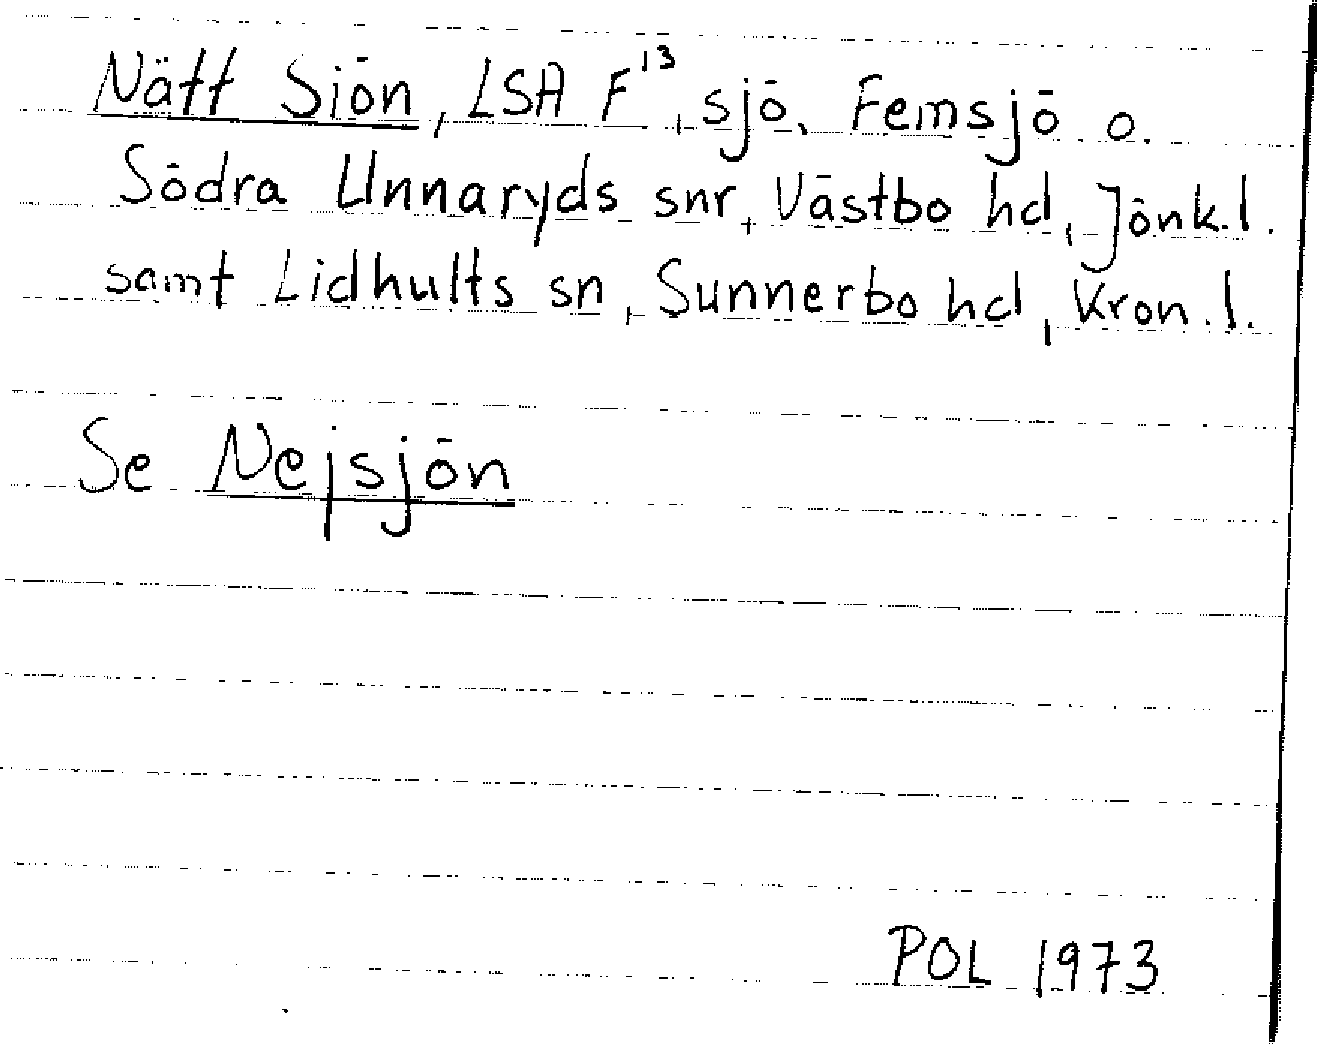 Nätt Siön, LSA F¹³, sjö, Femsjö o.
Södra Unnaryds snr, Västbo hd, Jönk.l.
samt Lidhults sn, Sunnerbo hd, Kron.l.
Se Nejsjön
POL 1973